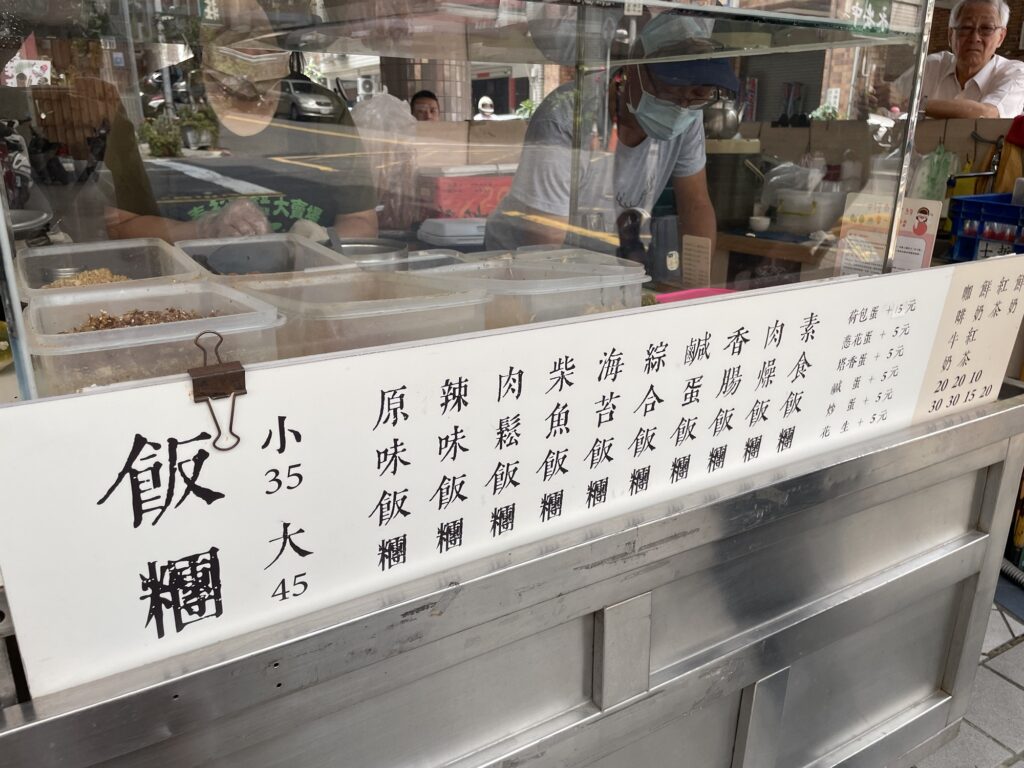 飯糰
小
35
大
45
原味飯糰
辣味飯糰
肉鬆飯糰
柴魚飯糰
海苔飯糰
綜合飯糰
鹹蛋飯糰
香腸飯糰
肉燥飯糰
素食飯糰
荷包蛋 +15元
蔥花蛋 +5元
塔香蛋 +5元
鹹 蛋 +5元
炒 蛋 +5元
花 生 +5元
咖啡牛奶
鮮奶紅茶
紅茶
鮮奶
20 20 10
30 30 15 20
大賣場